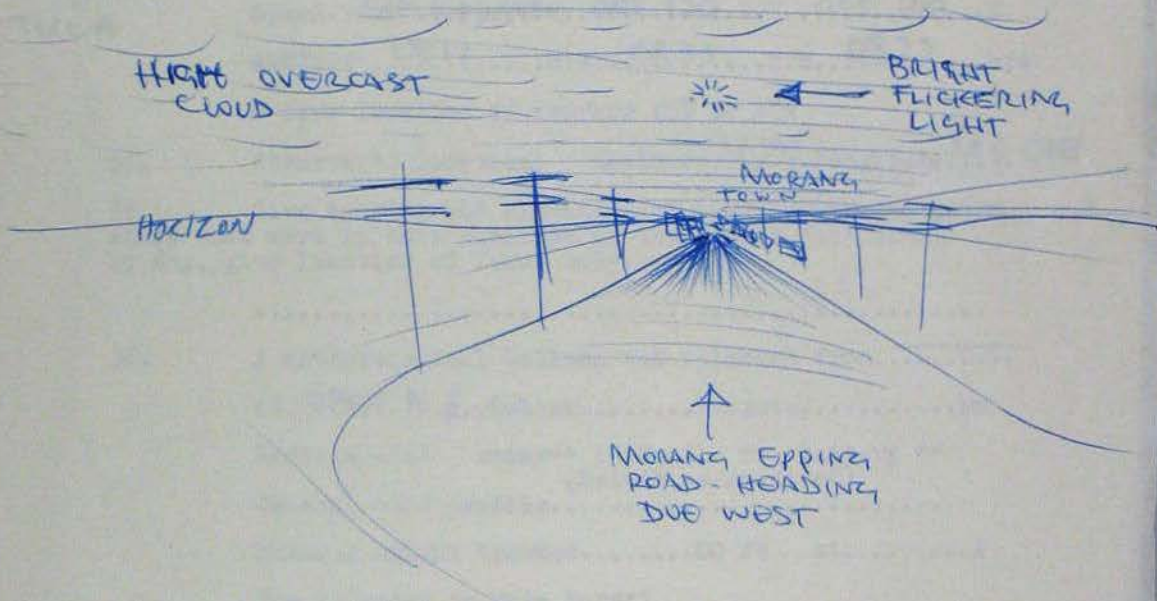 HIGH OVERCAST
CLOUD
BRIGHT
FLICKERING
LIGHT
MORANG
TOWN
HORIZON
MORANG EPPING
ROAD - HEADING
DUE WEST